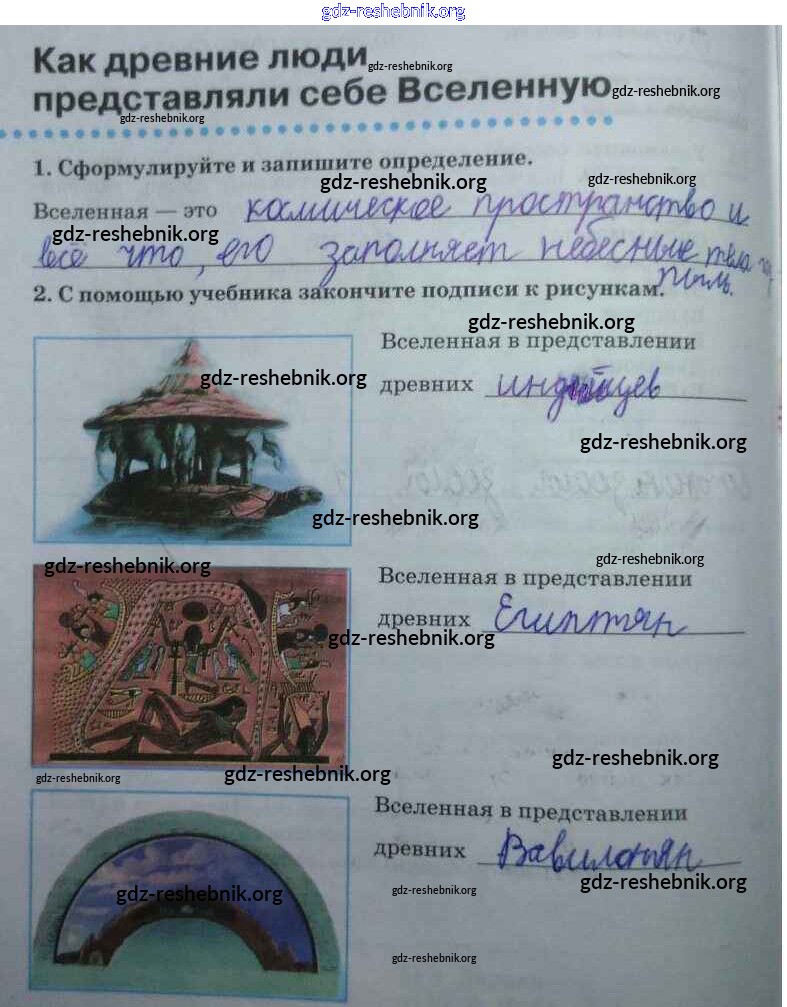 gdz-reshebnik.org
Как древние люди
gdz-reshebnik.org
представляли себе Вселенную
gdz-reshebnik.org
gdz-reshebnik.org
1. Сформулируйте и запишите определение.
gdz-reshebnik.org
gdz-reshebnik.org
Вселенная — это космическое пространство и
gdz-reshebnik.org
всё что, его заполняет небесные тела, газ,
пыль.
2. С помощью учебника закончите подписи к рисункам.
gdz-reshebnik.org
Вселенная в представлении
gdz-reshebnik.org
древних индийцев
gdz-reshebnik.org
gdz-reshebnik.org
gdz-reshebnik.org
gdz-reshebnik.org
Вселенная в представлении
древних Египтян
gdz-reshebnik.org
gdz-reshebnik.org
gdz-reshebnik.org
gdz-reshebnik.org
Вселенная в представлении
древних Вавилонян
gdz-reshebnik.org
gdz-reshebnik.org
gdz-reshebnik.org
gdz-reshebnik.org